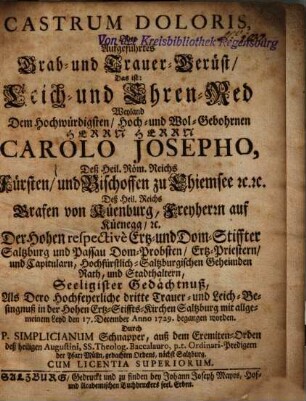 CASTRUM DOLORIS,
Von der Kreisbibliothek Regensburg
Aufgeführtes
Grab- und Trauer-Gerüst/
Das ist:
Leich- und Ehren-Red
Weyland
Dem Hochwürdigsten/ Hoch- und Wol-Gebohrnen
HERRN HERRN
CAROLO JOSEPHO,
Deß Heil. Röm. Reichs
Fürsten/ und Bischoffen zu Chiemsee ꝛc.ꝛc.
Deß Heil. Reichs
Grafen von Küenburg, Freyherrn auf
Küenegg/ ꝛc.
Der Hohen respectivè Ertz- und Dom-Stiffter
Saltzburg und Passau Dom-Probsten/ Ertz-Priestern/
und Capitularn, Hochfürstlich-Saltzburgischen Geheimden
Rath, und Stadthaltern,
Seeligister Gedächtnuß,
Als Dero Hochfeyerliche dritte Trauer- und Leich-Be-
singnuß in der Hohen Ertz-Stiffts-Kirchen Saltzburg mit allge-
meinem Leyd den 17. December Anno 1729. begangen worden.
Durch
P. SIMPLICIANUM Schnapper, auß dem Eremiten-Orden
deß heiligen Augustini, SS. Theolog. Baccalaureo, p.t. Ordinari-Predigern
der Pfarr Mülln, gedachten Ordens, nächst Saltzburg.
CUM LICENTIA SUPERIORUM.
SALZBURG/ Gedruckt und zu finden bey Johann Joseph Mayrs, Hof-
und Academischen Buchdruckers seel. Erben.